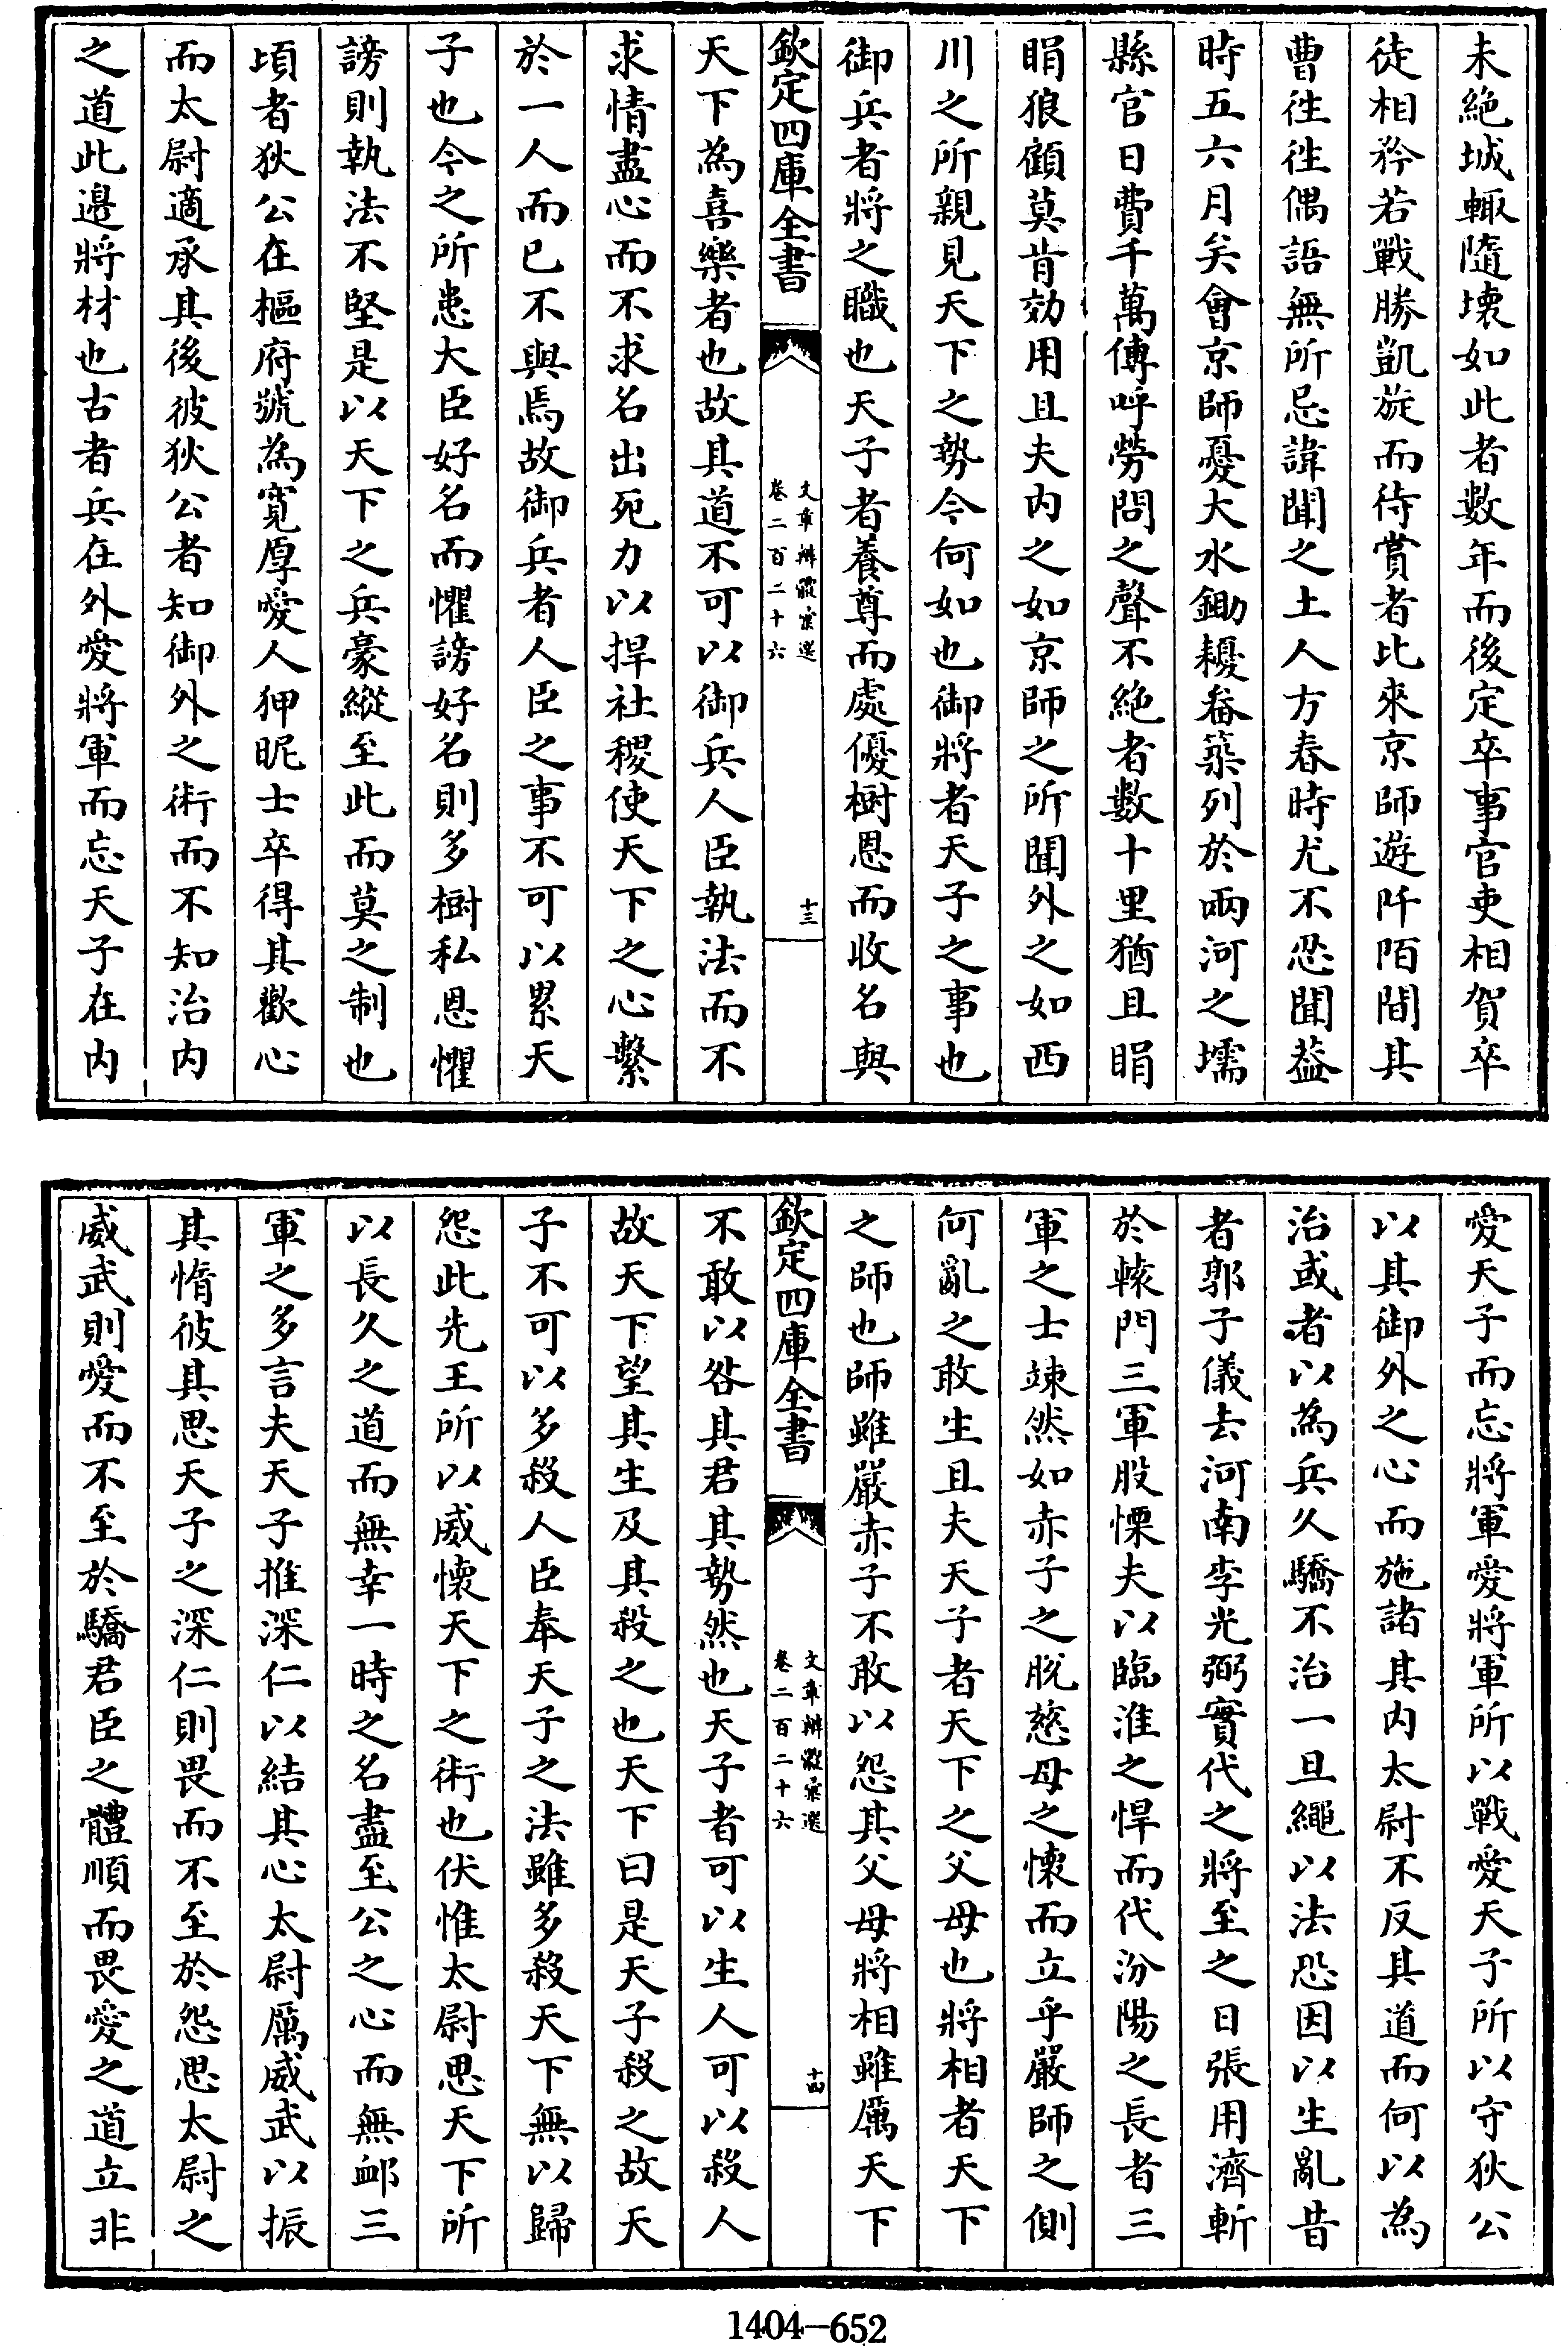 未絶城輙隨壊如此者數年而後定卒事官吏相賀卒
徒相矜若戰勝凱旋而待賞者比來京師遊阡陌間其
曹徃徃偶語無所忌諱聞之土人方春時尤不忍聞葢
時五六月矣會京師憂大水鋤耰畚築列於兩河之壖
縣官日費千萬傳呼勞問之聲不絶者數十里猶且睊
睊狼顧莫肯効用且夫内之如京師之所聞外之如西
川之所親見天下之勢今何如也御將者天子之事也
御兵者將之職也天子者養尊而處優樹恩而收名與
欽定四庫全書
文章辨體彚選
卷二百二十六
十三
天下為喜樂者也故其道不可以御兵人臣執法而不
求情盡心而不求名出死力以捍社稷使天下之心繫
於一人而已不與焉故御兵者人臣之事不可以累天
子也今之所患大臣好名而懼謗好名則多樹私恩懼
謗則執法不堅是以天下之兵豪縱至此而莫之制也
頃者狄公在樞府號為寛厚愛人狎昵士卒得其歡心
而太尉適承其後彼狄公者知御外之術而不知治内
之道此邊將材也古者兵在外愛將軍而忘天子在内
愛天子而忘將軍愛將軍所以戰愛天子所以守狄公
以其御外之心而施諸其内太尉不反其道而何以為
治或者以為兵久驕不治一旦繩以法恐因以生亂昔
者郭子儀去河南李光弼實代之將至之日張用濟斬
於轅門三軍股慄夫以臨淮之悍而代汾陽之長者三
軍之士竦然如赤子之脫慈母之懐而立乎嚴師之側
何亂之敢生且夫天子者天下之父母也將相者天下
之師也師雖嚴赤子不敢以怨其父母將相雖厲天下
欽定四庫全書
文章辨體彚選
卷二百二十六
十四
不敢以咎其君其勢然也天子者可以生人可以殺人
故天下望其生及其殺之也天下曰是天子殺之故天
子不可以多殺人人臣奉天子之法雖多殺天下無以歸
怨此先王所以威懐天下之術也伏惟太尉思天下所
以長久之道而無幸一時之名盡至公之心而無䘏三
軍之多言夫天子推深仁以結其心太尉厲威武以振
其惰彼其思天子之深仁則畏而不至於怨思太尉之
威武則愛而不至於驕君臣之體順而畏愛之道立非
1404-652